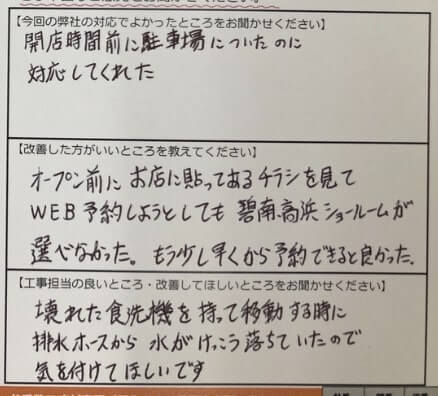 【今回の弊社の対応でよかったところをお聞かせください】
開店時間前に駐車場についたのに
対応してくれた
【改善した方がいいところを教えてください】
オープン前にお店に貼ってあるチラシを見て
WEB予約しようとしても碧南高浜ショールームが
選べなかった。もう少し早くから予約できると良かった。
【工事担当の良いところ・改善してほしいところをお聞かせください】
壊れた食洗機を持って移動する時に
排水ホースから水がけっこう落ちていたので
気を付けてほしいです